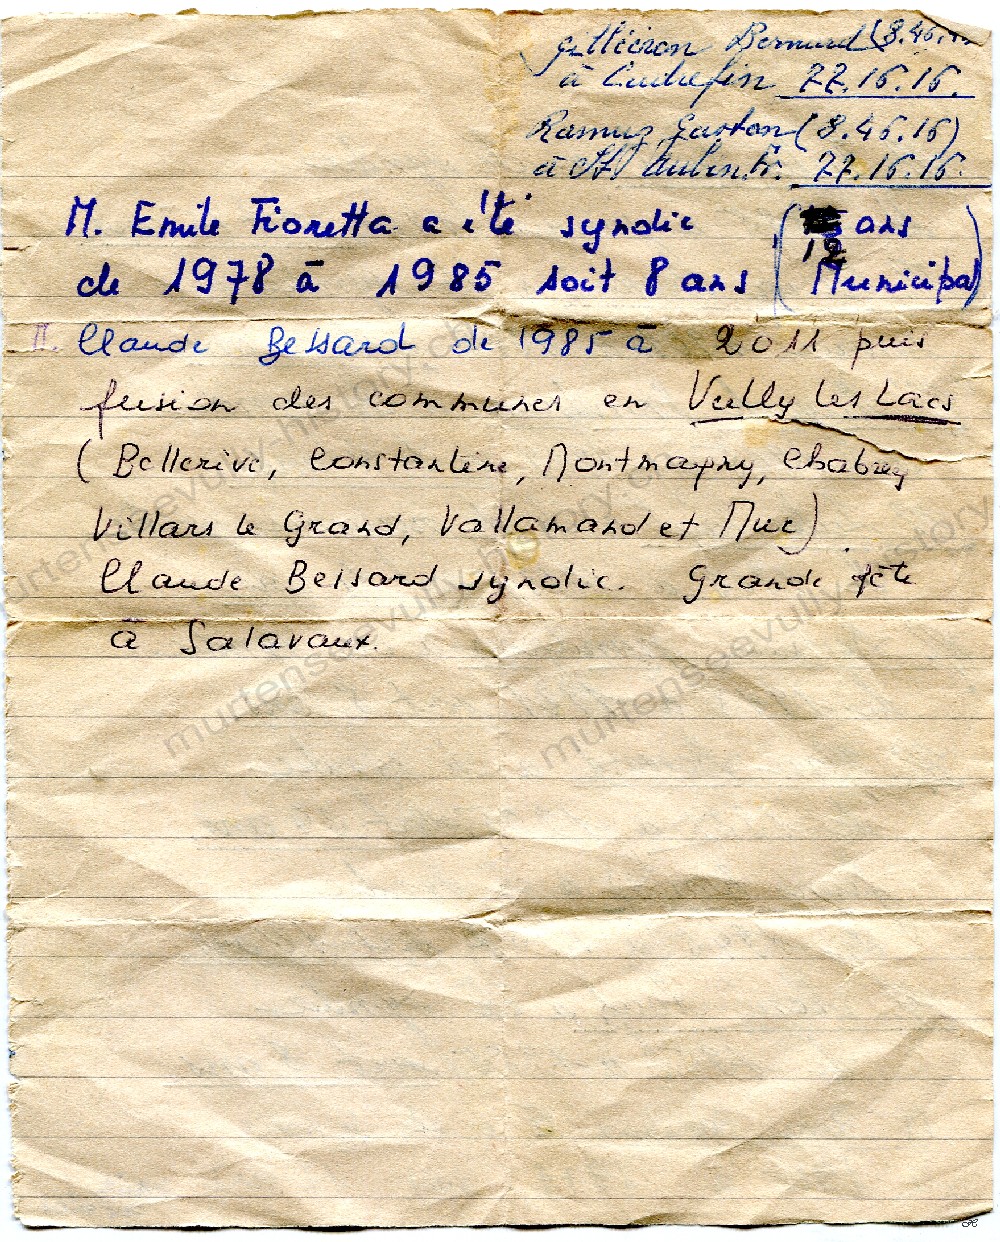 Gilliéron Bernard (8.46.
à Cudrefin 77.16.16.
Ramuz Gaston (8.46.16)
à St Aubin Fr. 77.16.16.
M. Emile Fioretta a été syndic ( ans
12
de 1978 à 1985 soit 8 ans Municipal)
M. Claude Bessard de 1985 à 2011 puis
fusion des communes en Vully les Lacs
(Bellerive, Constantine, Montmagny, Chabrey
Villars le Grand, Vallamand et Mur)
Claude Bessard syndic. Grande fête
à Salavaux.
murtenseevully.history.ch
murtenseevully.history.ch